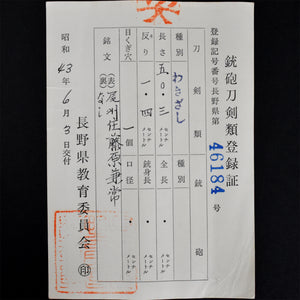 銃砲刀剣類登録証
登録記号番号長野県第46184号
刀剣類
銃砲
種別
わきざし
種別
長さ
五〇・三
センチメートル
全長
・
センチメートル
反り
一・四
センチメートル
銃身長
・
センチメートル
目くぎ穴
一個
口径
・
センチメートル
銘文
(表)尾州住藤原兼常
(裏)なし
昭和43年6月3日交付
長野県教育委員会㊞